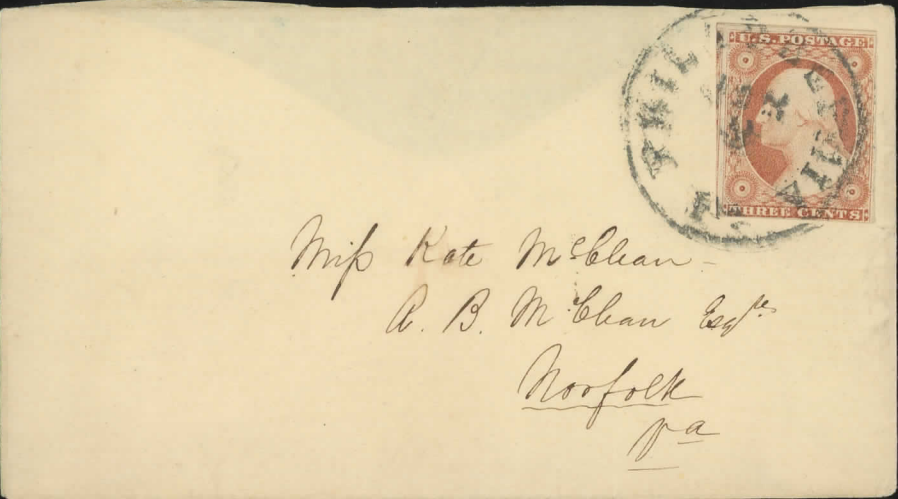 U.S. POSTAGE
THREE CENTS
PHILADELPHIA
Miſs Kate McClean
A. B. McClean Esqre
Norfolk
Va